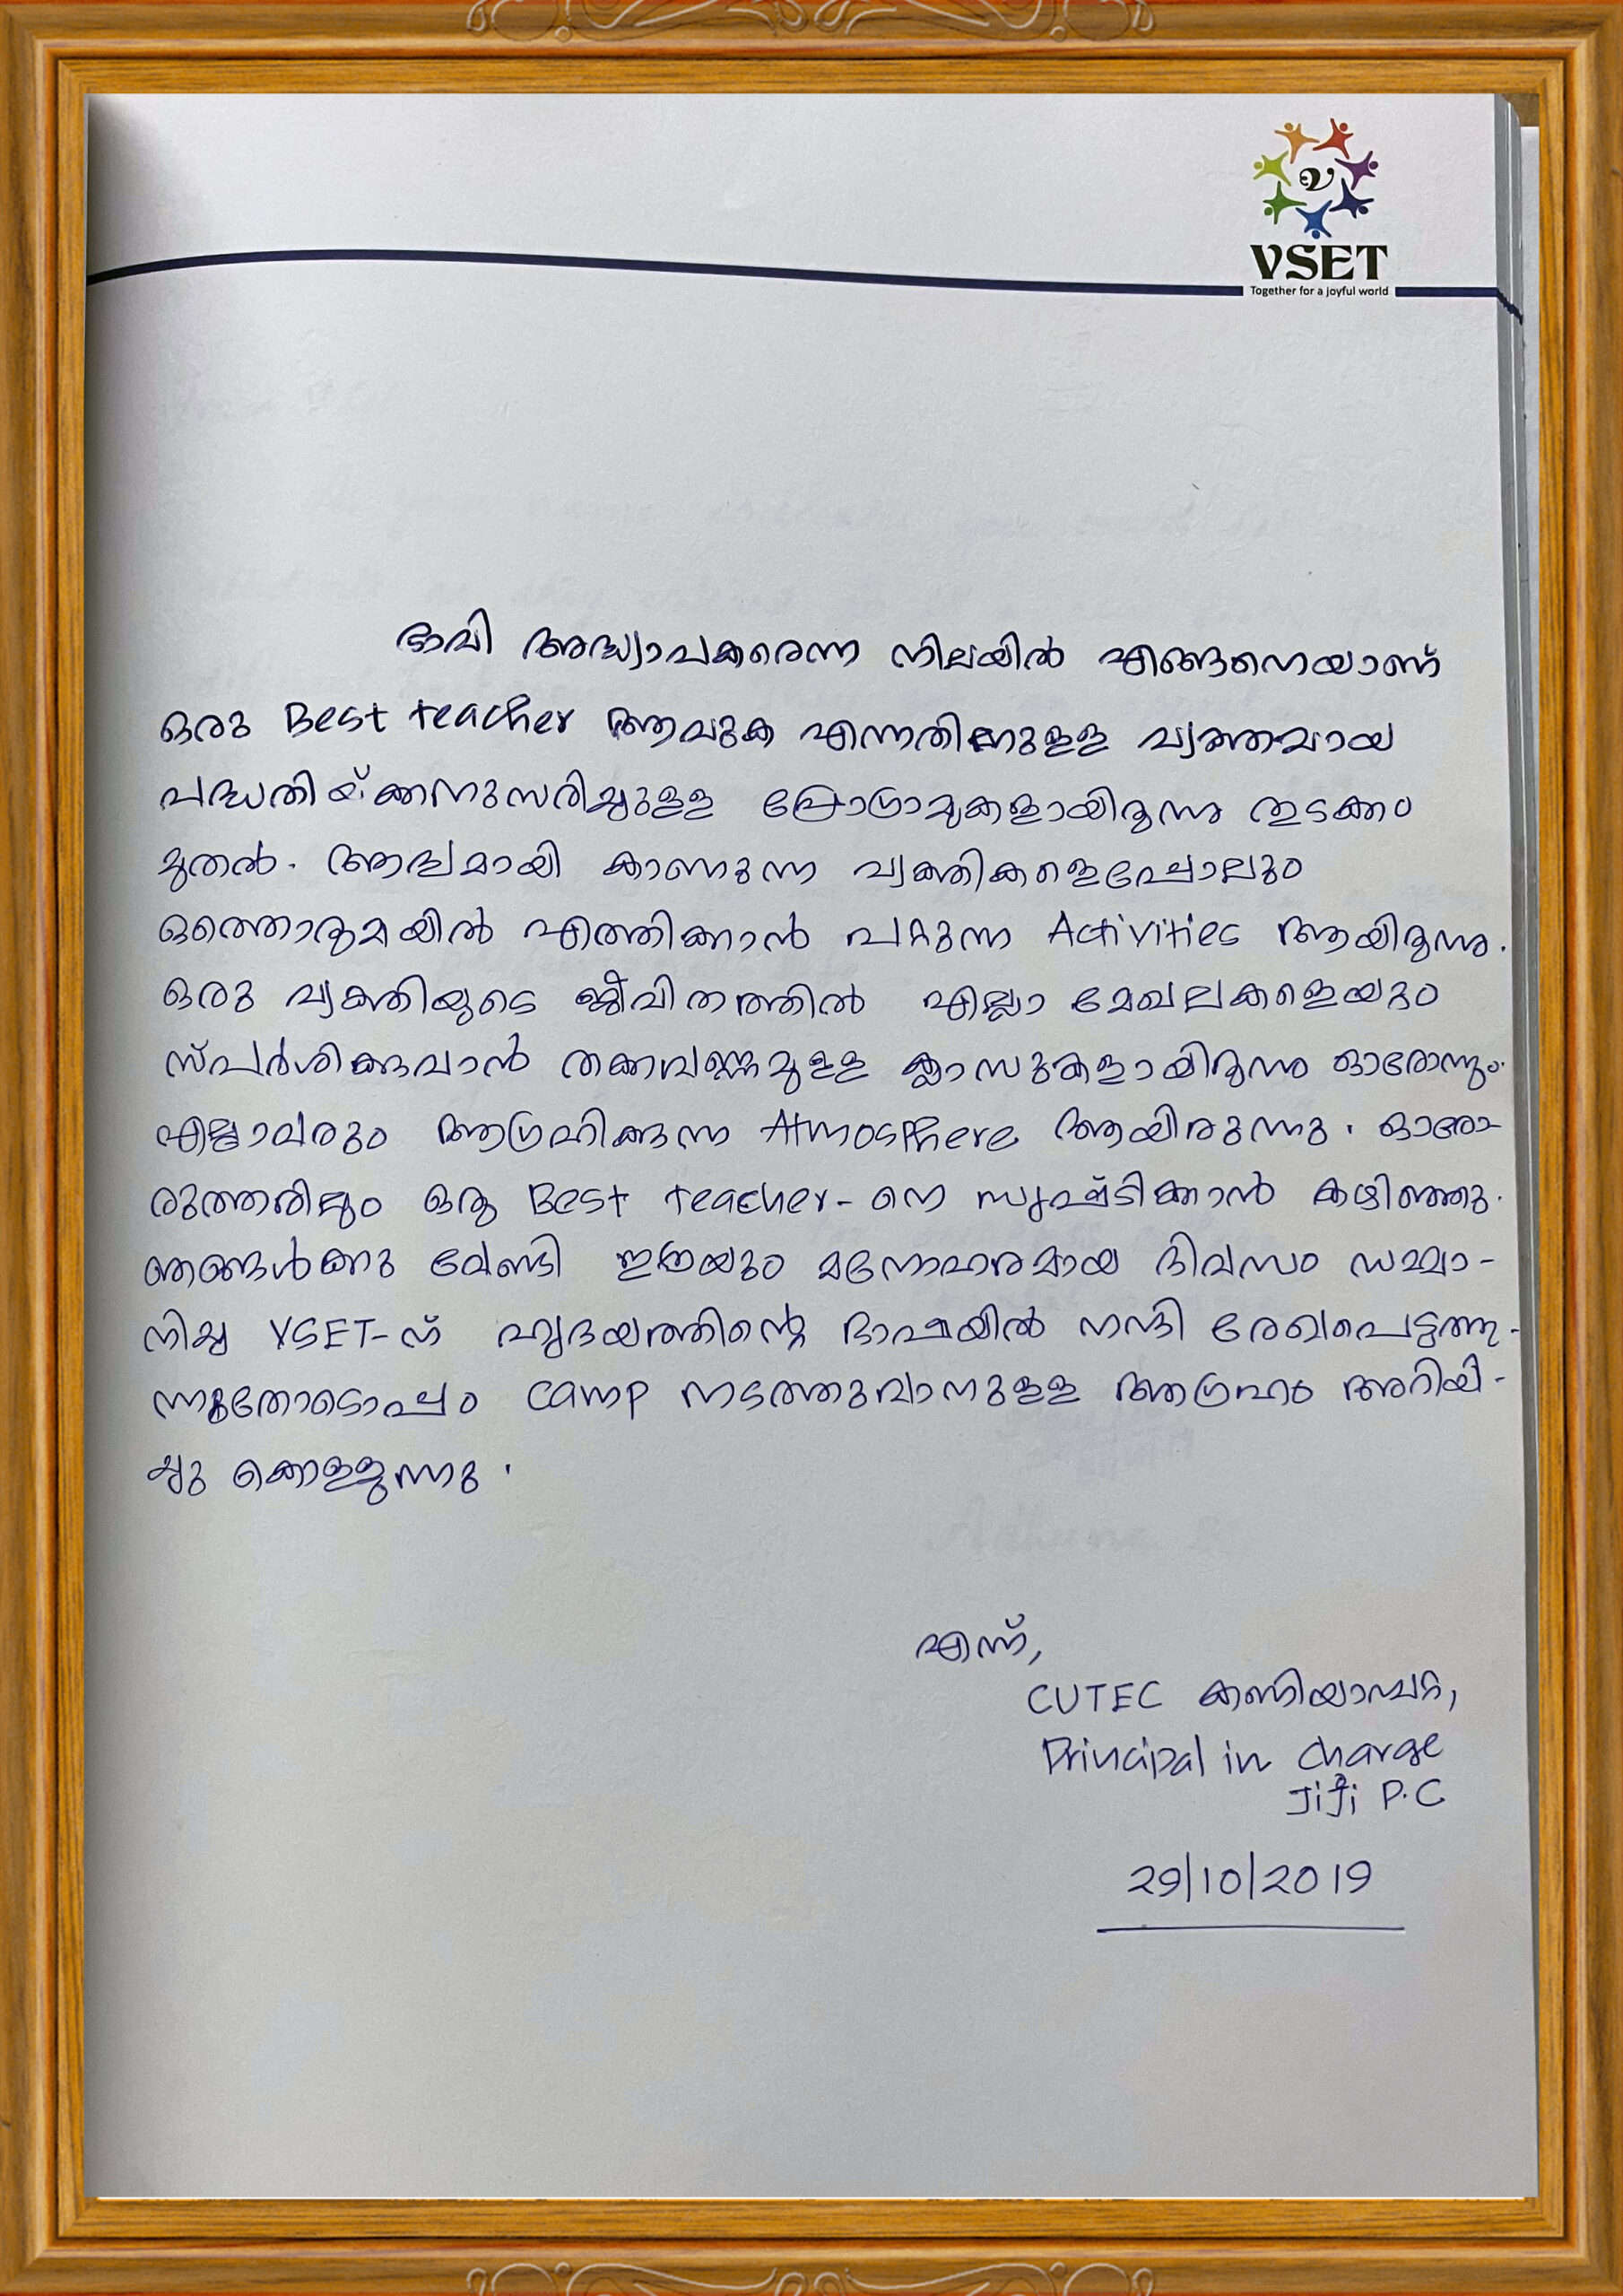 VSET
Together for a joyful world
ഭാവി അദ്ധ്യാപകരെന്ന നിലയിൽ എങ്ങനെയാണ്
ഒരു Best teacher ആവുക എന്നതിനുള്ള വ്യക്തമായ
പദ്ധതിയ്ക്കനുസരിച്ചുള്ള പ്രോഗ്രാമുകളായിരുന്നു തുടക്കം
മുതൽ. ആദ്യമായി കാണുന്ന വ്യക്തികളെപ്പോലും
ഒത്തൊരുമയിൽ എത്തിക്കാൻ പറ്റുന്ന Activities ആയിരുന്നു.
ഒരു വ്യക്തിയുടെ ജീവിതത്തിൽ എല്ലാ മേഖലകളെയും
സ്പർശിക്കുവാൻ തക്കവണ്ണമുള്ള ക്ലാസുകളായിരുന്നു ഓരോന്നും.
എല്ലാവരും ആഗ്രഹിക്കുന്ന Atmosphere ആയിരുന്നു. ഓരോ-
രുത്തരിലും ഒരു Best teacher-നെ സൃഷ്ടിക്കാൻ കഴിഞ്ഞു.
ഞങ്ങൾക്കു വേണ്ടി ഇത്രയും മനോഹരമായ ദിവസം സമ്മാ-
നിച്ച VSET-ന് ഹൃദയത്തിന്റെ ഭാഷയിൽ നന്ദി രേഖപെടുത്തു-
ന്നതോടൊപ്പം camp നടത്തുവാനുള്ള ആഗ്രഹം അറിയി-
ച്ചു കൊള്ളുന്നു.
എന്ന്,
CUTEC കണിയാമ്പറ്റ,
Principal in charge
Jiji P.C
29/10/2019